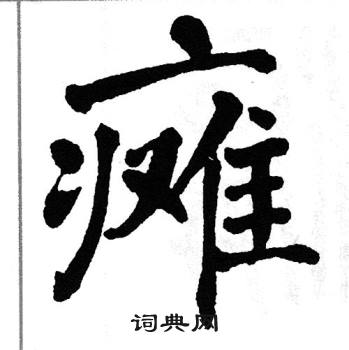 瘫
词典网